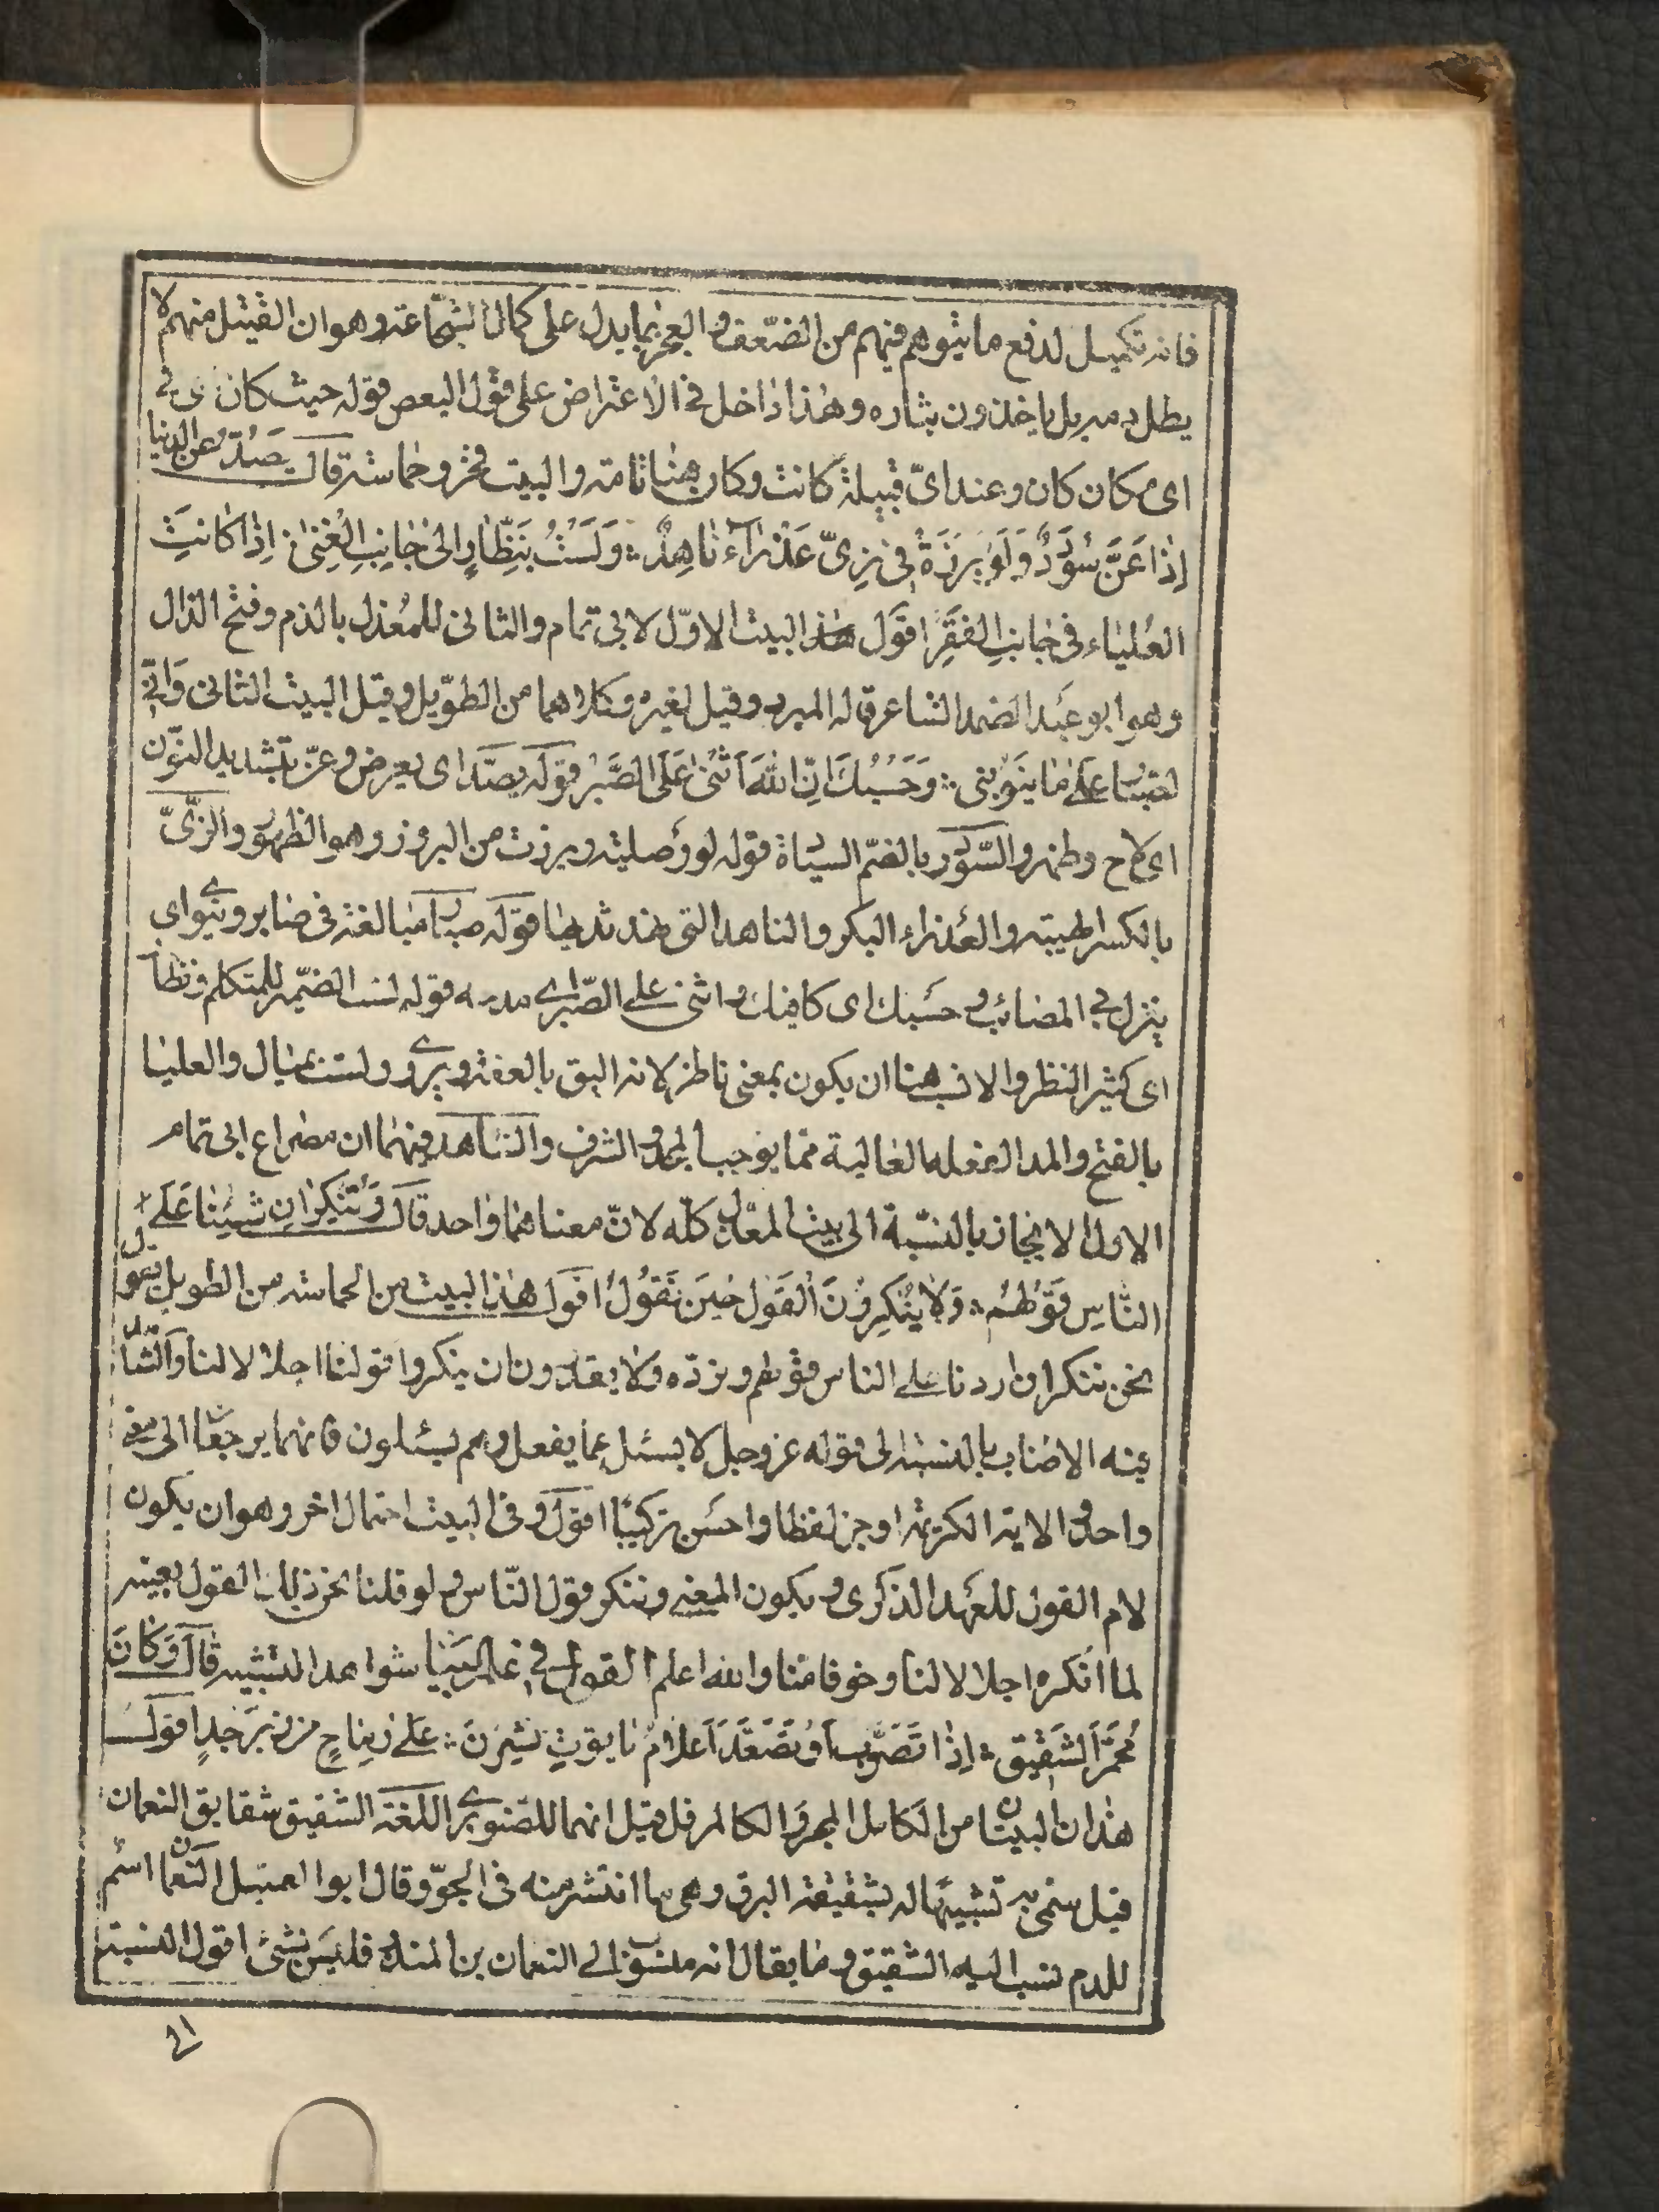 فانه تكميل لدفع ما يتوهم فيهم من الضعف والعجز بما يدل على كمال الشجاعة وهو ان القتيل منهم لا
يطل دمه بل ياخذون بثاره وهذا داخل فى الاعتراض على قول البعض قوله حيث كان اى فى
اى مكان كان وعند اىّ قبيلة كانت وكان ههنا تامة والبيت فخر وحماسة قال يَصُدُّ عن الدنيا
اِذا عَنَّ سُؤدَدٌ وَلَو بَرَزَتْ فى زِىِّ عَذْراءَ ناهِدٍ وَلَسْتُ بِنَظّارٍ اِلى جانِبِ الغِنى اِذا كانَتِ
العُلياءُ فى جانِبِ الفَقرِ اقول هذا البيت الاوّل لابى تمام والثانى للمُعذل بالذم وفتح الذال
وهو ابو عبد الصمد الشاعر قاله المبرد وقيل لغيره وكلاهما من الطويل وقبل البيت الثانى وَاِنّى
لصبّار على ما يَنوبنى وَحَسْبُكَ اَنّ اللهَ اَثنى عَلَى الصَّبرِ قوله يصدّ اى يعرض وعنّ بتشديد النون
اى لاح وظهر والسّؤدد بالضمّ السيادة قوله لو وصلية وبرزت من البروز وهو الظهور والزىّ
بالكسر الهيئة والعذراء البكر والناهد التى نهد ثديها قوله صبّار مبالغة فى صابر وينوبنى اى
ينزل بى المصائب وحسبك اى كافيك واثنى على الصّبر اى مدحه قوله لست الضمير للمتكلم ونظار
اى كثير النظر والانسب هنا ان يكون بمعنى ناظر لانه اليق بالعفة ويروى ولست بميال والعليا
بالفتح والمد الفعلة العالية مما يوجب المجد والشرف والشاهد فيهما ان مصراع ابى تمام
الاول الايجاز بالنسبة الى بيت المعذل كله لانّ معناهما واحد قال وَنُنكِرُ اِن شِئنا عَلَى
النّاسِ قَوْلَهُم وَلا يُنكِرونَ القَولَ حينَ نَقُولُ اقول هذا البيت من الحماسة من الطويل يقول
نحن ننكر ان اردنا على الناس قولهم ونردّه ولا يقدرون ان ينكروا قولنا اجلالا لنا والشاهد
فيه الاطناب بالنسبة الى قوله عز وجل لا يسئل عما يفعل وهم يسئلون فانهما يرجعان الى معنى
واحد والاية الكريمة اوجز لفظا واحسن تركيبا اقول وفى البيت احتمال اخر وهو ان يكون
لام القول للعهد الذكرى ويكون المعنى وننكر قول النّاس ولو قلنا نحن ذلك القول بعينه
لما انكره اجلالا لنا وخوفا منا والله اعلم القول فى علم البيان شواهد التشبيه قال وَكانَ
مُحمَرَّ الشَقيقِ اِذا تَصَوَّبَ اَو تَصَعَّدَ اَعلامُ ياقوتٍ نُشِرنَ عَلى رِماحٍ مِن زَبَرجَدِ اقول
هذان البيتان من الكامل المجزو الكامل مرفل قيل انهما للصنوبرى اللغة الشقيق شقايق النعمان
قيل سمى به تشبيها له بشقيقة البرق وهى ما انتشر منه فى الجوّ وقال ابوا العميثل النعمان اسم
للدم نسب اليه الشقيق وما يقال انه منسوب الى النعمان بن المنذر فليس بشئ اقول النسبة
الى